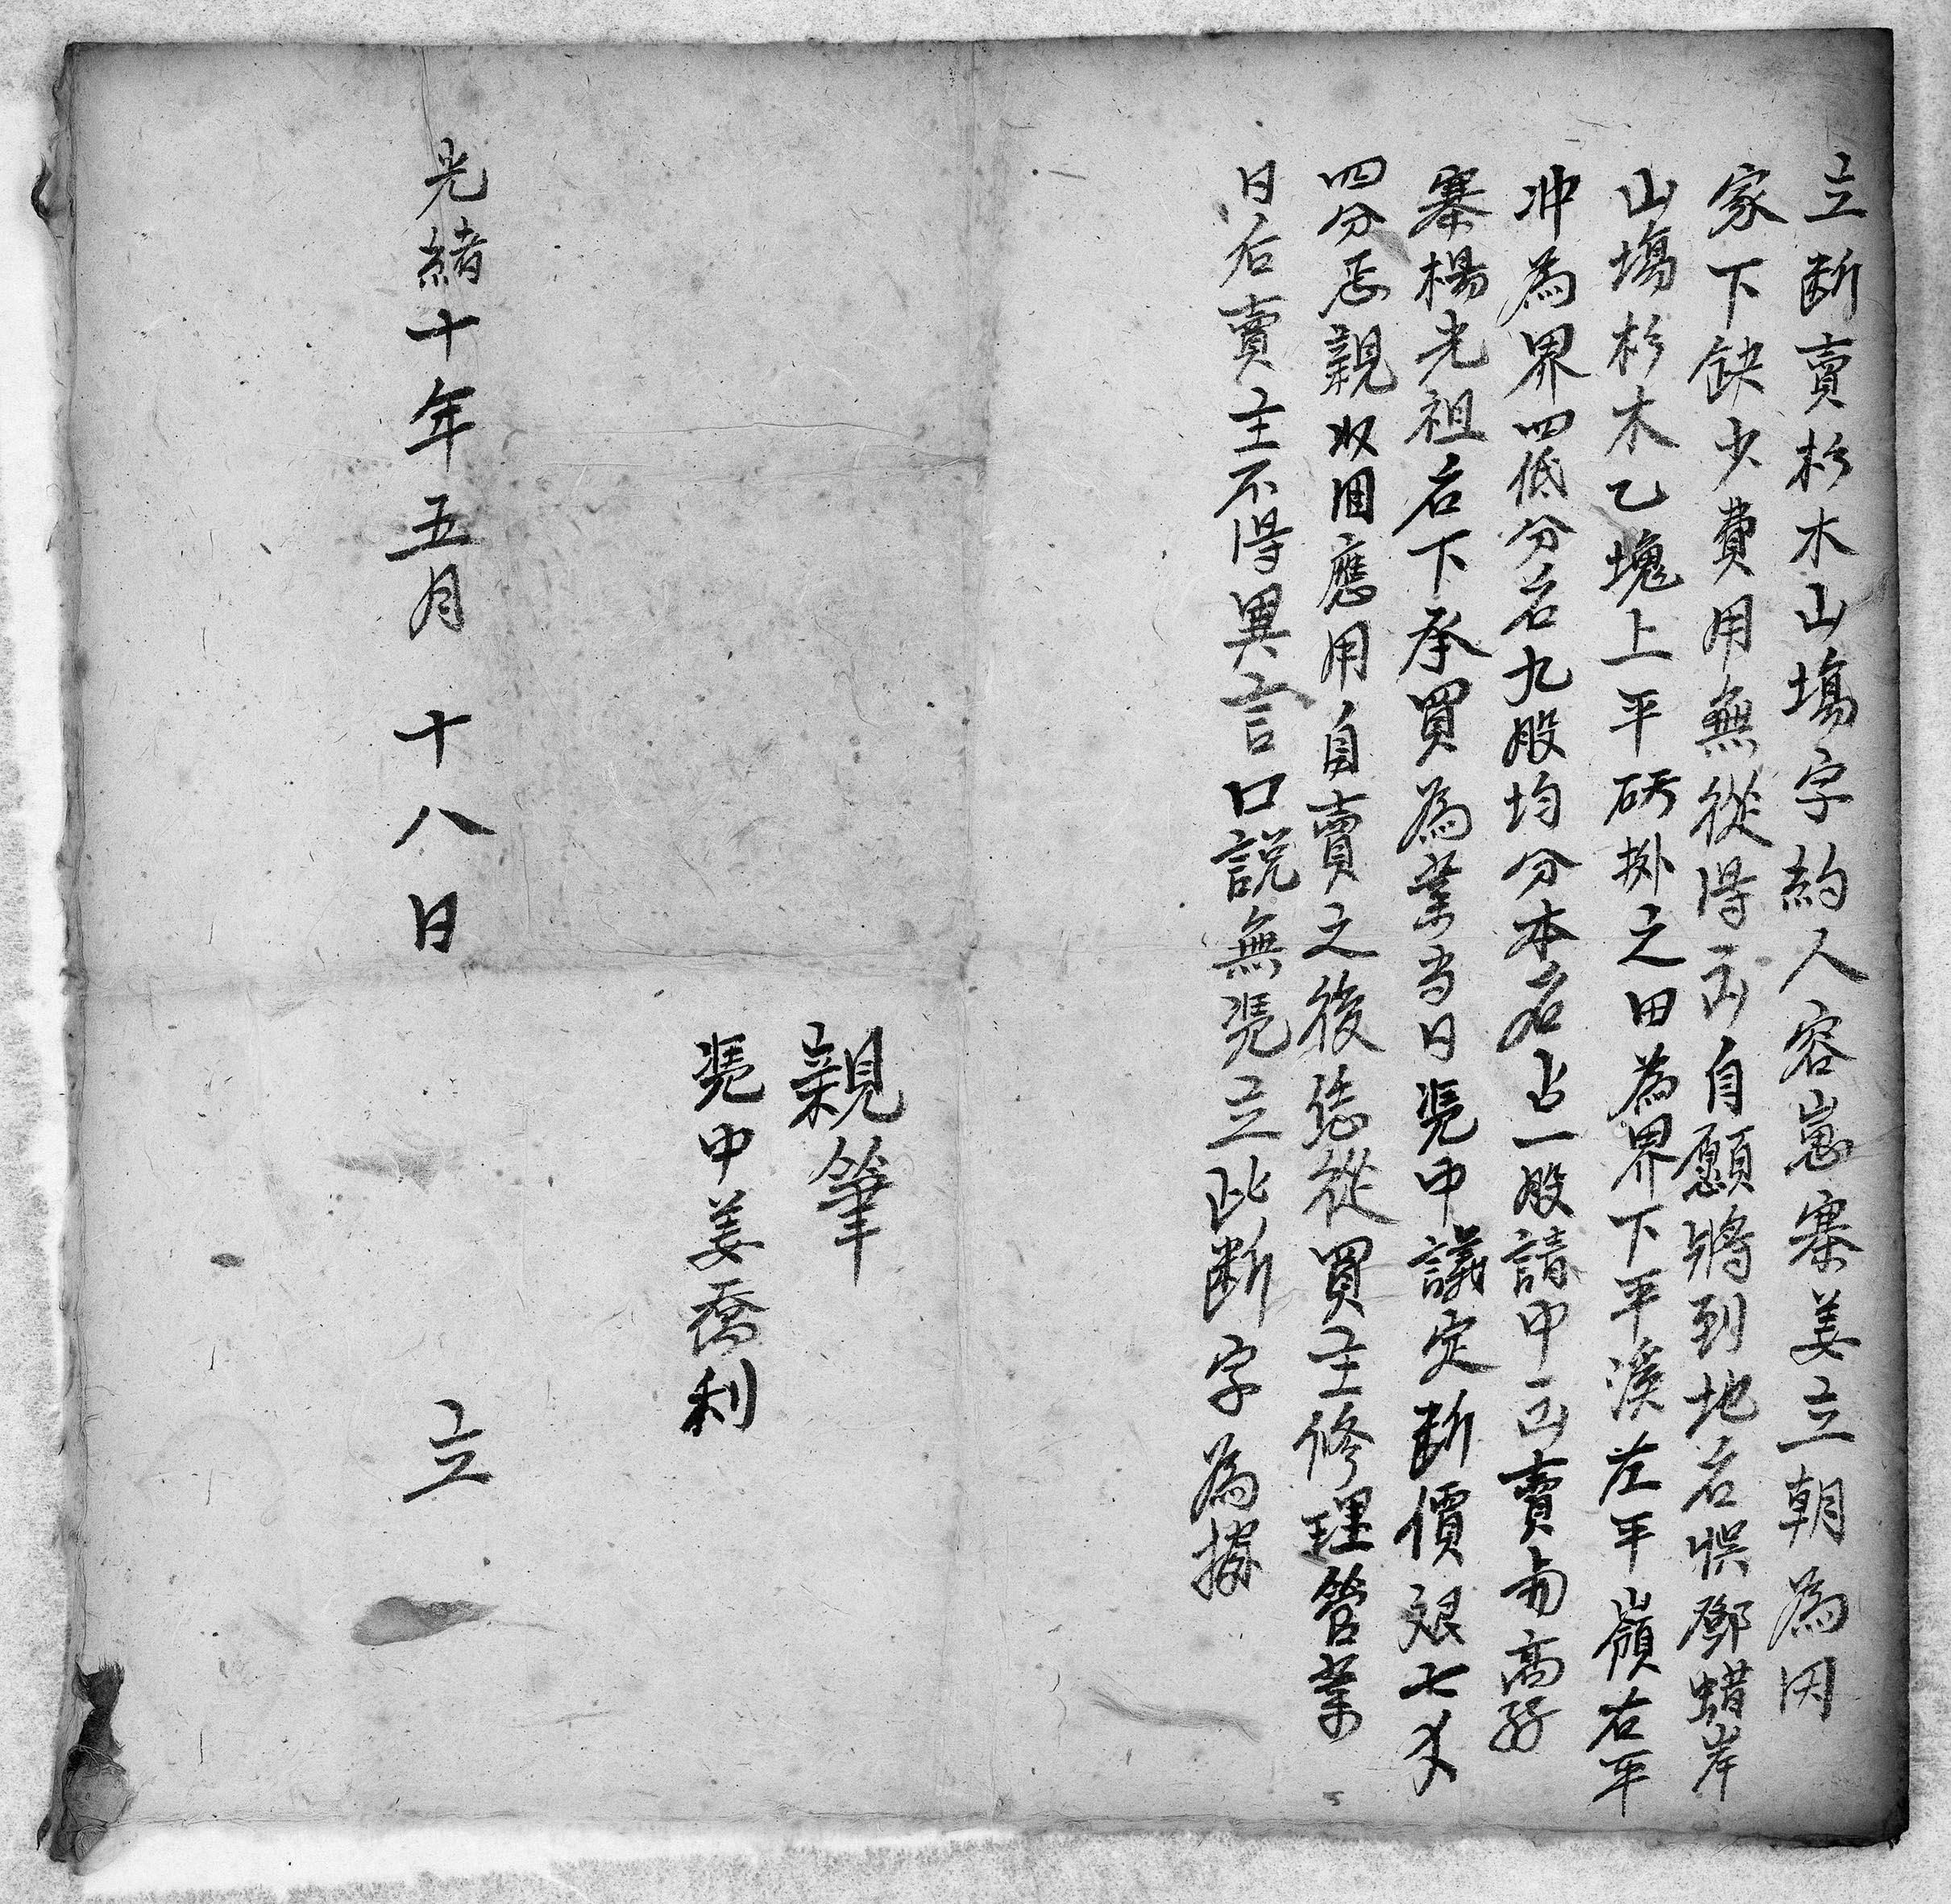 立斷賣杉木山塲字約人容嵩寨姜立朝為因
家下缺少費用無從得出自願將到地名悞鄧蜡岸
山塲杉木乙塊上平硦掛之田為界下平溪左平嶺右平
冲為界四低分名九股均分本名占一股請中出賣與高仔
寨楊光祖名下承買為業当日凴中議定斷價艮七文
四分悉親収回應用自賣之後恁從買主修理管業
日后賣主不得異言口説無凴立此斷字為據
親筆
凴中姜喬利
光緒十年五月 十八日 立